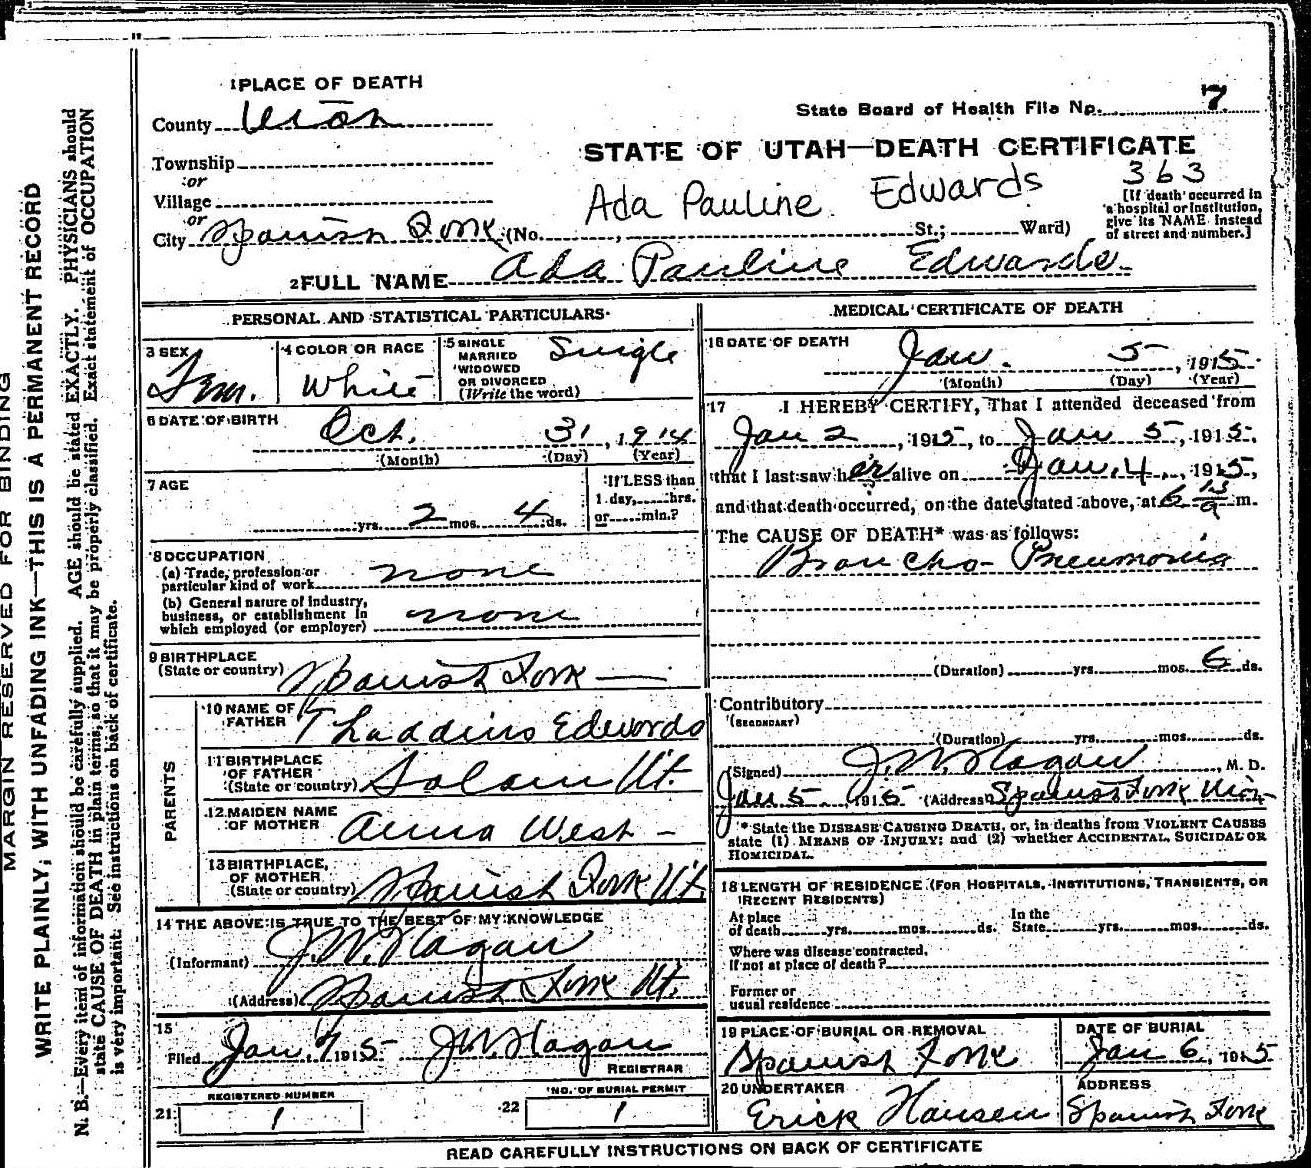 1 PLACE OF DEATH
State Board of Health File No. 7
County Utah
STATE OF UTAH—DEATH CERTIFICATE
363
Township
or
Village
or
Ada Pauline Edwards
[If death occurred in
a hospital or institution,
give its NAME instead
of street and number.]
City Spanish Fork (No. , St.; Ward)
2 FULL NAME Ada Pauline Edwards
PERSONAL AND STATISTICAL PARTICULARS
3 SEX
Fem.
4 COLOR OR RACE
White
5 SINGLE
MARRIED
WIDOWED
OR DIVORCED
(Write the word)
Single
6 DATE OF BIRTH
Oct. 31, 1914
(Month) (Day) (Year)
7 AGE
yrs. 2 mos. 4 ds.
If LESS than
1 day, hrs.
or min.?
8 OCCUPATION
(a) Trade, profession or
particular kind of work none
(b) General nature of industry,
business, or establishment in
which employed (or employer) none
9 BIRTHPLACE
(State or country) Spanish Fork
PARENTS
10 NAME OF
FATHER Thaddius Edwards
11 BIRTHPLACE
OF FATHER
(State or country) Salem Ut.
12 MAIDEN NAME
OF MOTHER Anna West
13 BIRTHPLACE,
OF MOTHER
(State or country) Spanish Fork Ut.
14 THE ABOVE IS TRUE TO THE BEST OF MY KNOWLEDGE
(Informant) J.W. Hagan
(Address) Spanish Fork Ut.
15
Filed Jan 1915 J.W. Hagan
REGISTRAR
REGISTERED NUMBER
21: 1
NO. OF BURIAL PERMIT
22 1
MEDICAL CERTIFICATE OF DEATH
16 DATE OF DEATH
Jan. 5, 1915
(Month) (Day) (Year)
17 I HEREBY CERTIFY, That I attended deceased from
Jan 2, 1915, to Jan 5, 1915,
that I last saw her alive on Jan. 4, 1915,
and that death occurred, on the date stated above, at 6 15/a m.
The CAUSE OF DEATH* was as follows:
Broncho- Pneumonia
(Duration) yrs. mos. 6 ds.
Contributory
(SECONDARY)
(Duration) yrs. mos. ds.
(Signed) J.W. Hagan, M. D.
Jan 5 1915 (Address) Spanish Fork Utah
* State the DISEASE CAUSING DEATH, or, in deaths from VIOLENT CAUSES
state (1) MEANS OF INJURY; and (2) whether ACCIDENTAL, SUICIDAL OR
HOMICIDAL.
18 LENGTH OF RESIDENCE (FOR HOSPITALS, INSTITUTIONS, TRANSIENTS, OR
RECENT RESIDENTS)
At place
of death yrs. mos. ds.
In the
State yrs. mos. ds.
Where was disease contracted,
if not at place of death?
Former or
usual residence
19 PLACE OF BURIAL OR REMOVAL
Spanish Fork
DATE OF BURIAL
Jan 6, 1915
20 UNDERTAKER
Erick Hansen
ADDRESS
Spanish Fork
READ CAREFULLY INSTRUCTIONS ON BACK OF CERTIFICATE
MARGIN RESERVED FOR BINDING
WRITE PLAINLY, WITH UNFADING INK—THIS IS A PERMANENT RECORD
N. B.—Every item of information should be carefully supplied. AGE should be stated EXACTLY. PHYSICIANS should
state CAUSE OF DEATH in plain terms, so that it may be properly classified. Exact statement of OCCUPATION
is very important. See instructions on back of certificate.